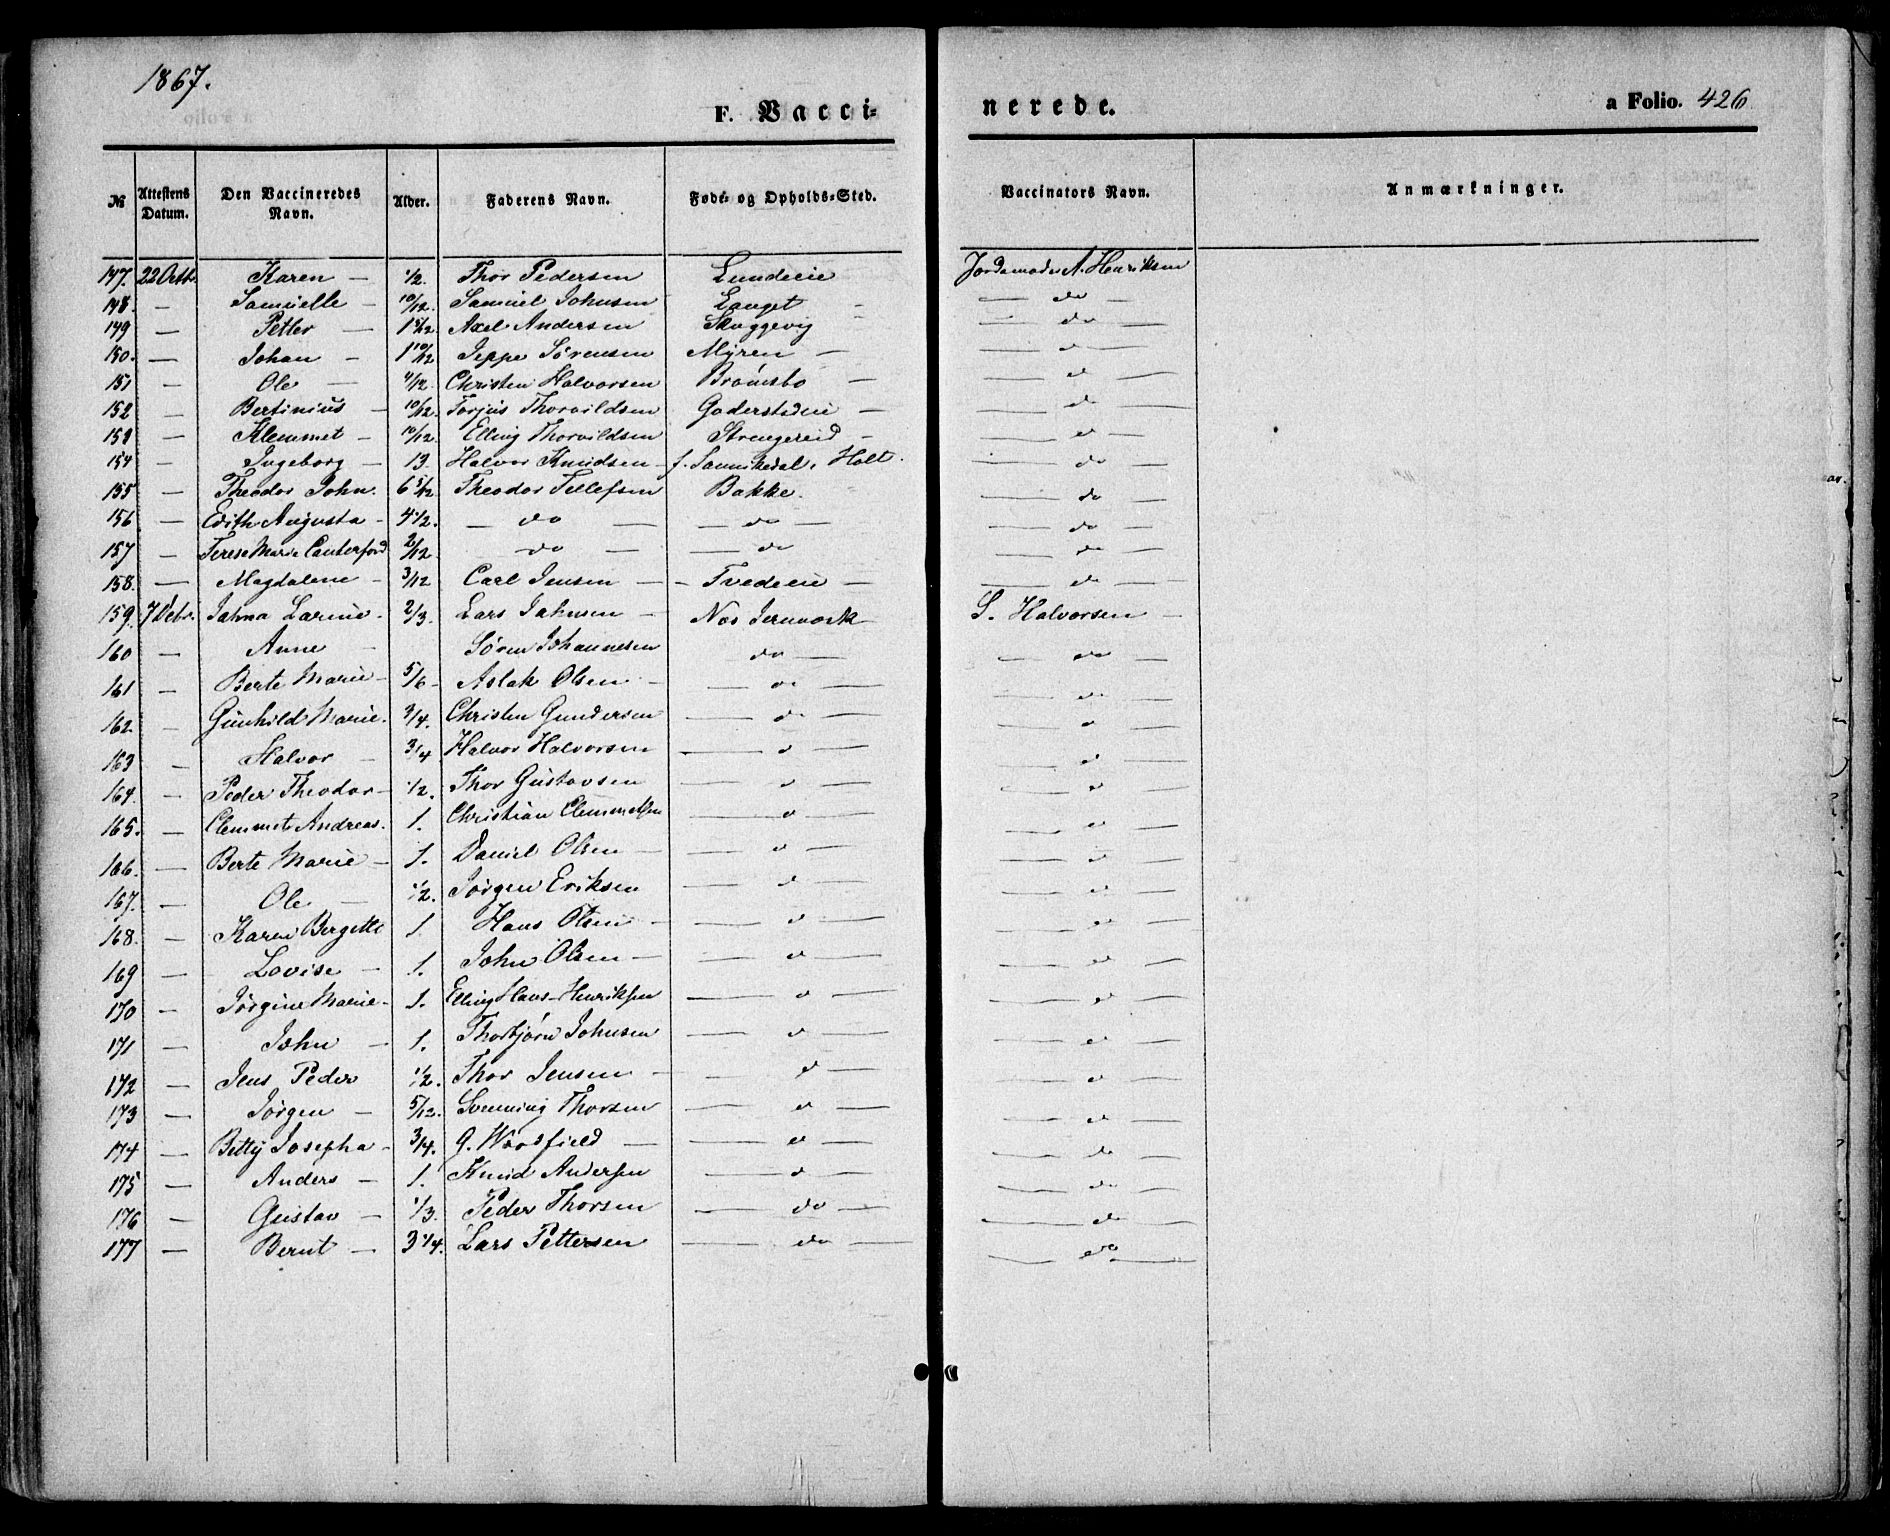 1867.
F. Vaccinerede.
a Folio. 426
№ | Attestens Datum. | Den Vaccineredes Navn. | Alder. | Faderens Navn. | Føde- og Opholds-Sted. | Vaccinators Navn. | Anmærkninger.
147. | 22 Octb. | Karen — | 1/2. | Thor Pedersen | Lundeeie | Jordemoder A. Henriksen
148. | — | Samuelle — | 10/12. | Samuel Johnsen | Langet | — do —
149 | — | Petter — | 1 5/12. | Axel Andersen | Skuggevig | — do —
150. | — | Johan — | 1 10/12 | Jeppe Sørensen | Myren — | — do —
151 | — | Ole — | 4/12. | Christen Halvorsen | Brømsbo — | — d —
152 | — | Bertinius — | 10/12. | Torjus Thorvildsen | Goderstadeie — | — do —
153 | — | Klemmet — | 10/12. | Elling Thorvildsen | Strengereid — | — d —
154 | — | Ingeborg — | 13. | Halvor Knudsen — | f. Sannikedal, Holt. | — do —
155 | — | Theodor John. | 6 5/12. | Theodor Tellefsen | Bakke. | — do —
156 | — | Edith Augusta — | 4 1/2. | — do — | — do — | — do —
157 | — | Terese Marie Canterford | 2/12 | — do — | — do | — do —
158. | — | Magdalene — | 3/12 | Carl Jensen — | — Tvedeeie — | — d —
159. | 7 Debr. | Jahna Larine. | 2/3. | Lars Jahnsen — | Næs Jernværk | S. Halvorsen —
160 | — | Anne — | Søren Johannesen | do — | — do —
161 | — | Berte Marie — | 5/6 — | Aslak Olsen — | — do — | — do —
162. | — | Gunhild Marie. | 3/4. | Christen Gundersen | — do — | — d —
163 | — | Halvor — | 3/4 | Halvor Halvorsen | — d — | — d —
164. | — | Peder Theodor — | 1/2. | Thor Gustavsen | — d — | — d —
165. | — | Clemmet Andreas. | 1. | Christian Clemmetsen | — d — | — d —
166. | — | Berte Marie — | 1. | Daniel Olsen — | — d — | — d —
167. | — | Ole — | 1/2. | Jørgen Eriksen | — d — | — d —
168. | — | Karen Bergette | 1 | Hans Olsen — | — d — | — d —
169 | — | Lovise — | 1. | John Olsen — | — d — | — d —
170 | — | Jørgine Marie — | 1. | Elling Hans Henriksen | — d — | — d —
171 | — | John — | 1. | Thorbjørn Johnsen | — d — | — d —
172 | — | Jens Peder | 1/2. | Thor Jensen — | — d — | — d —
173 | — | Jørgen — | 5/12. | Svenning Thorsen | — d — | — d —
174 | — | Betty Josepha — | 3/4. | G. Woodfield — | — d — | — do —
175 | — | Anders — | 1. | Knud Andersen | — d — | — do —
176 | — | Gustav — | 1/3. | Peder Thorsen | — do — | — d —
177 | — | Bernt — | 3 1/4. | Lars Pettersen | — do — | — do —